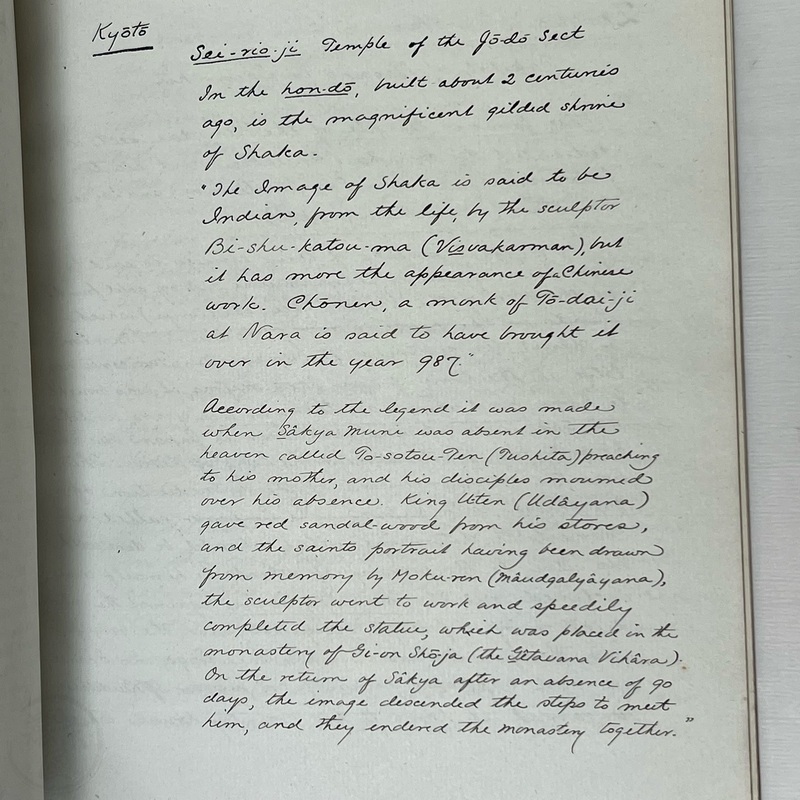 Kyōtō
Sei-rio-ji Temple of the Jō-dō Sect
In the hon-dō, built about 2 centuries
ago, is the magnificent gilded shrine
of Shaka.
"The Image of Shaka is said to be
Indian, from the life, by the sculptor
Bi-shu-katsu-ma (Visvakarman), but
it has more the appearance of a Chinese
work. Chōnen, a monk of Tō-dai-ji
at Nara is said to have brought it
over in the year 987."
According to the legend it was made
when Sâkya Muni was absent in the
heaven called To-sotsu-Ten (Tushita) preaching
to his mother, and his disciples mourned
over his absence. King Uten (Udâyana)
gave red sandal-wood from his stores,
and the saints portrait having been drawn
from memory by Moku-ren (Mâudgalyâyana),
the sculptor went to work and speedily
completed the statue, which was placed in the
monastery of Gi-on Shōja (the Gêtavana Vihâra).
On the return of Sâkya after an absence of 90
days, the image descended the steps to meet
him, and they endered the monastery together."